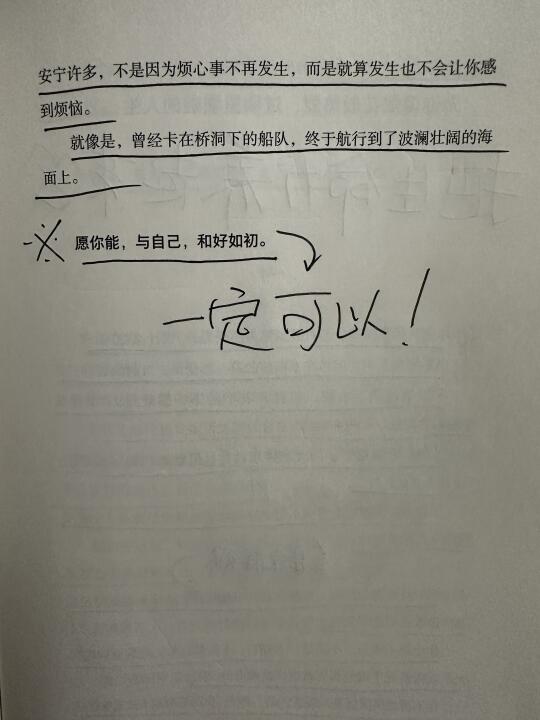 安宁许多，不是因为烦心事不再发生，而是就算发生也不会让你感
到烦恼。
就像是，曾经卡在桥洞下的船队，终于航行到了波澜壮阔的海
面上。
※ 愿你能，与自己，和好如初。
一定可以！